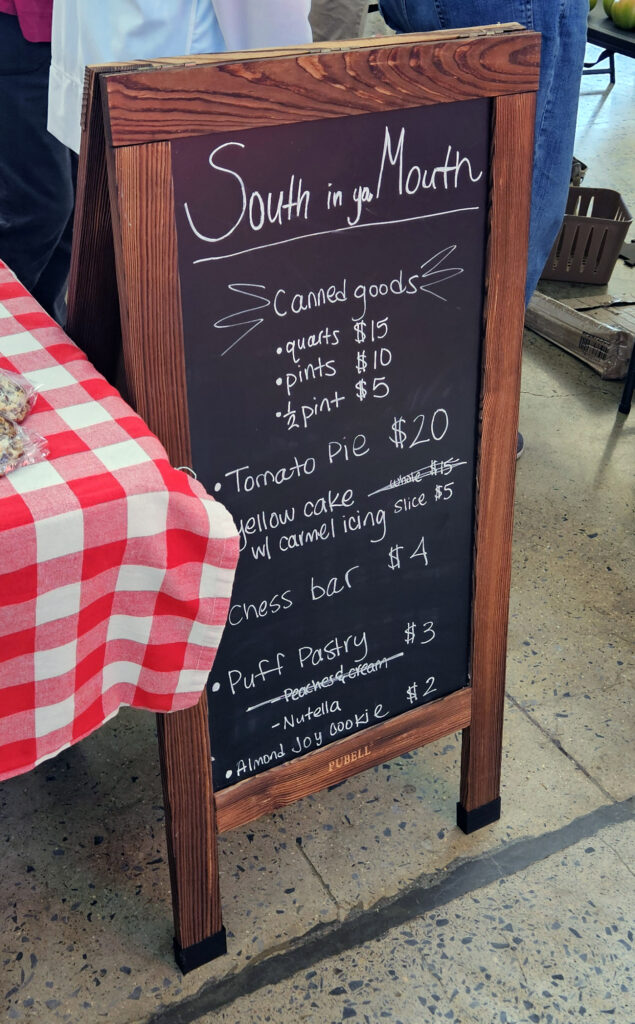 South in ya Mouth
Canned goods
• quarts $15
• pints $10
• ½ pint $5
• Tomato Pie $20
yellow cake whole $15
w/ carmel icing slice $5
chess bar $4
• Puff Pastry $3
- Peaches & cream
- Nutella
• Almond Joy Cookie $2
PUBELL